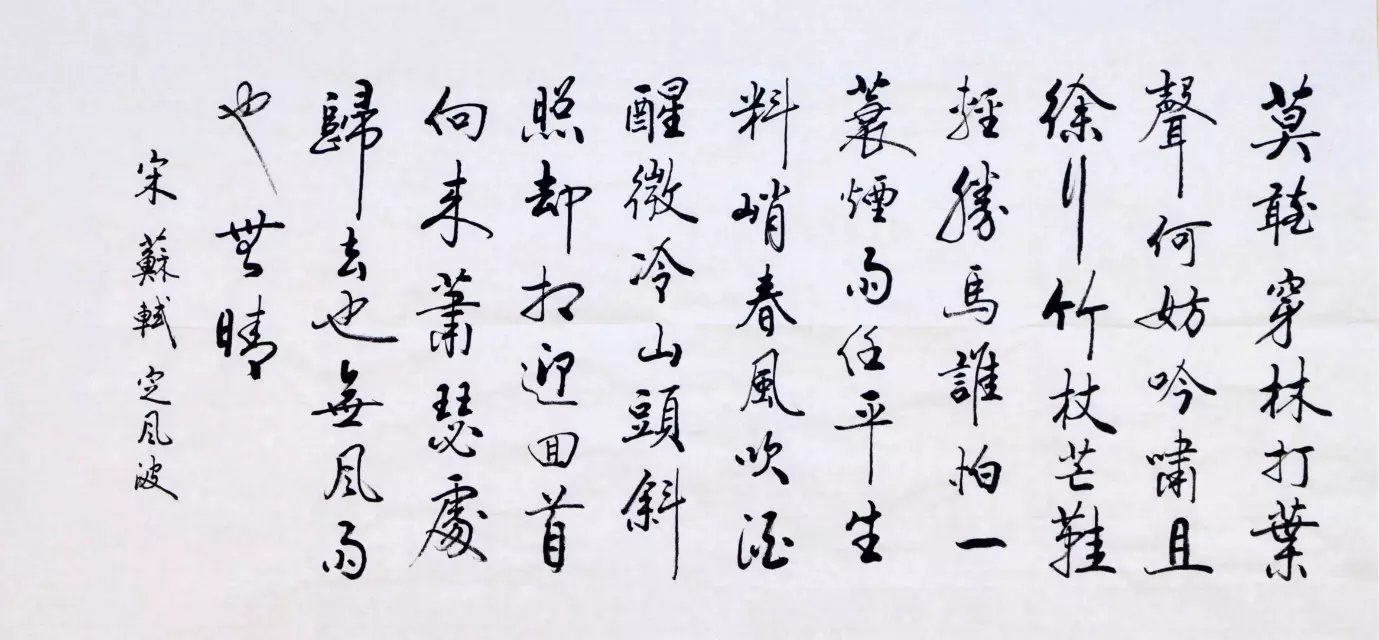 莫聽穿林打葉
聲何妨吟嘯且
徐行竹杖芒鞋
輕勝馬誰怕一
蓑煙雨任平生
料峭春風吹酒
醒微冷山頭斜
照却相迎回首
向来蕭瑟處
歸去也無风雨
也無晴
宋 蘇軾 定风波